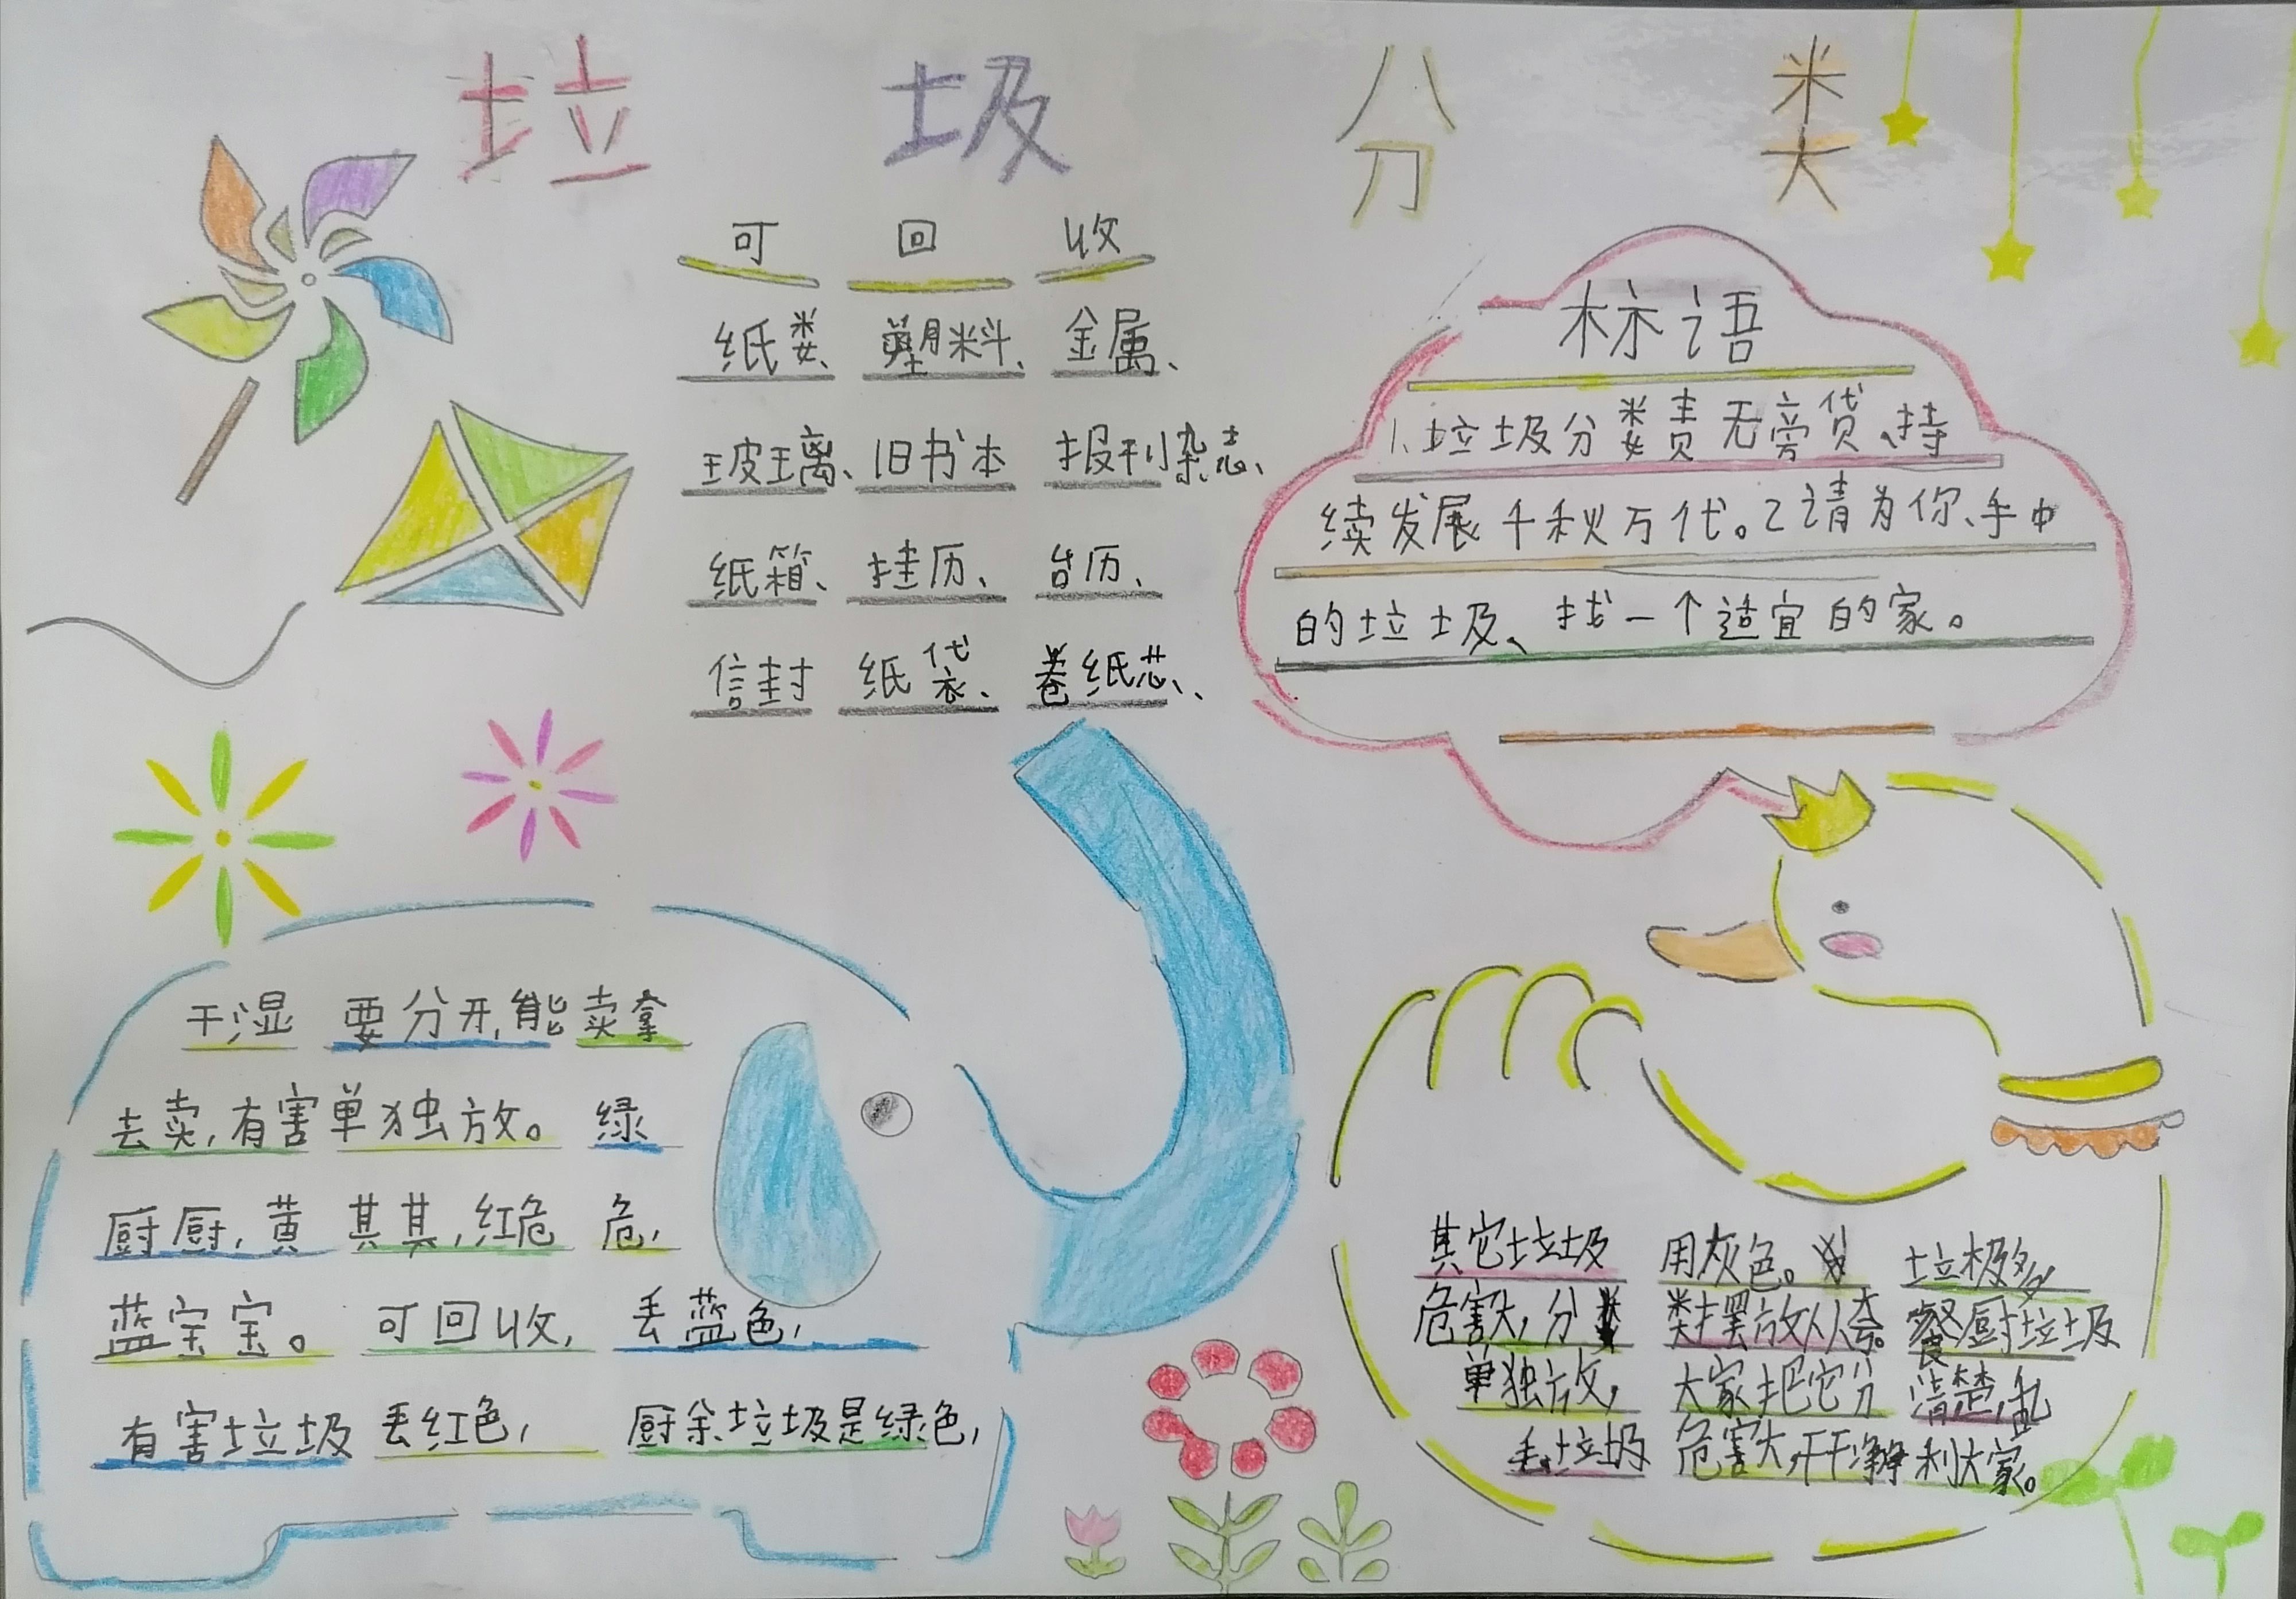 垃圾分类
可回收
纸类、塑料、金属、
玻璃、旧书本 报刊杂志、
纸箱、挂历、台历、
信封 纸袋、卷纸芯、
标语
1、垃圾分类责无旁贷、持
续发展千秋万代。2请为你、手中
的垃圾、找一个适宜的家。
干湿 要分开,能卖拿
去卖,有害单独放。绿
厨厨,黄 其其,红危 危,
蓝宝宝。可回收,丢蓝色,
有害垃圾 丢红色, 厨余垃圾是绿色,
其它垃圾 用灰色。 垃圾多
危害大,分 类摆放人人夸。餐厨垃圾
单独放, 大家把它分 清楚,乱
丢垃圾 危害大,干干净净利大家。